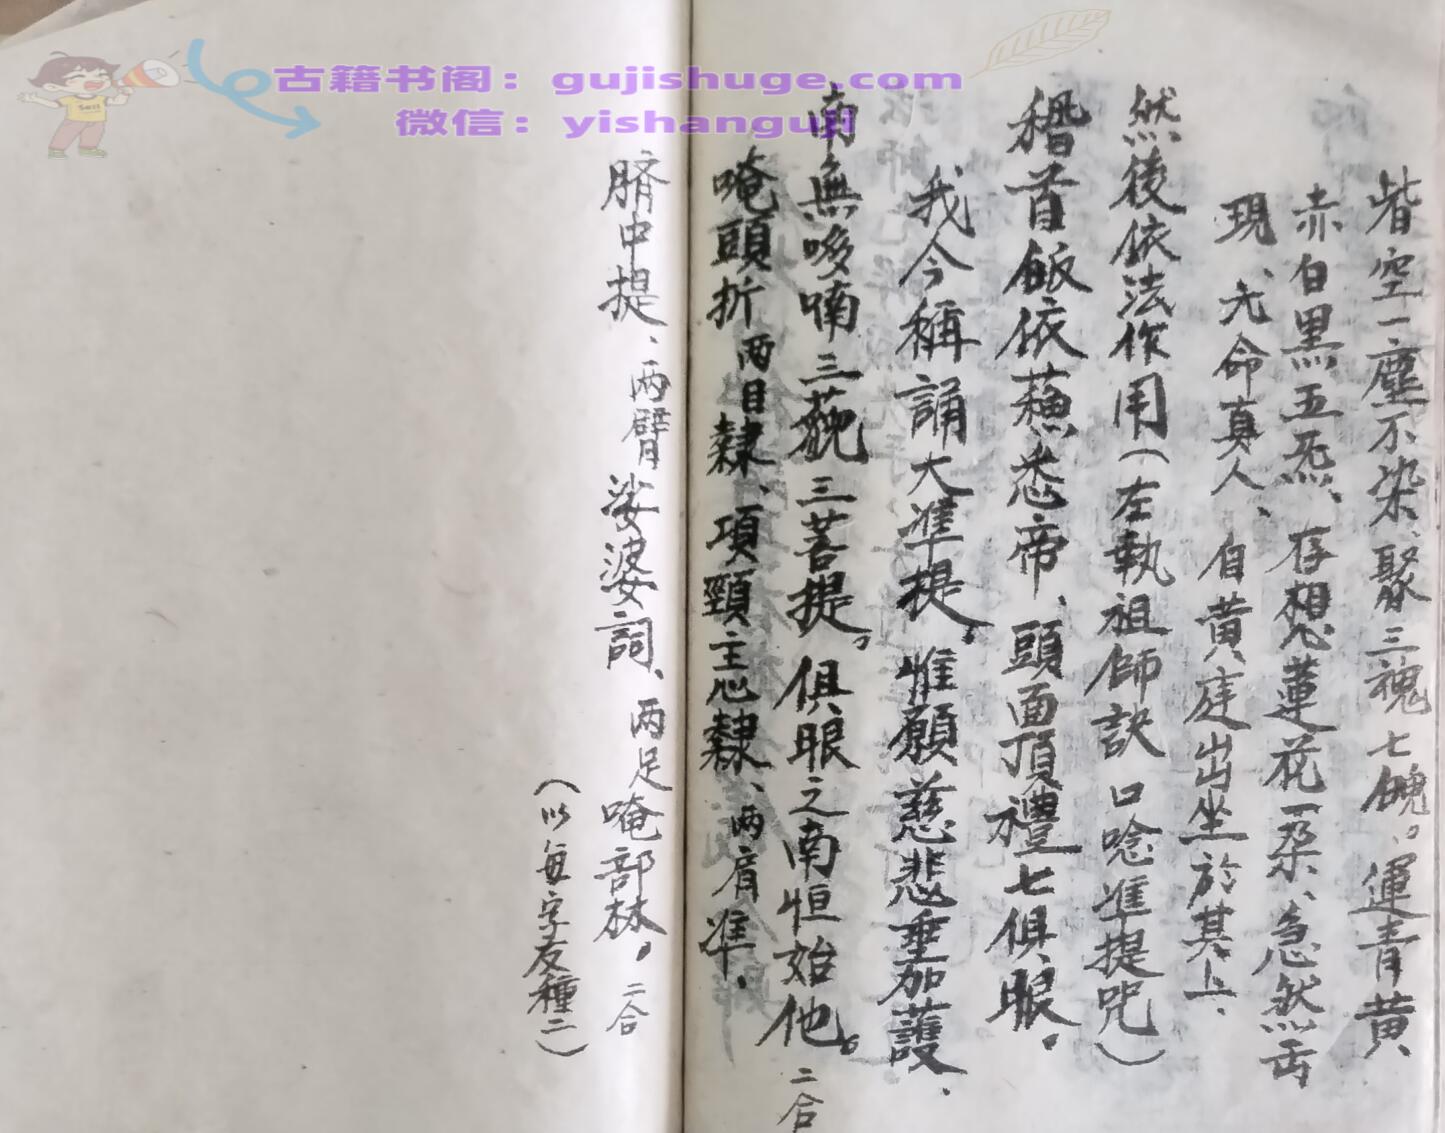 古籍书阁：gujishuge.com
微信：yishanguji
皆空一塵不染、聚三魂七魄。運青黄
赤白黑五炁、存想蓮花一朶、急然舌
現、元命真人、自黄庭出坐於其上、
然後依法作用（左執祖師訣 口唸準提咒）
稽首皈依蘓悉帝、頭面頂禮七俱眼。
我今稱誦大準提。惟願慈悲垂加護、
南無哆喃三菀三菩提。俱眼之南恒始他。二合
唵頭折 两目隸、項頸主心隸、两肩準、
臍中提、两臂娑婆訶、两足唵部林。二合
（以每字友種二）